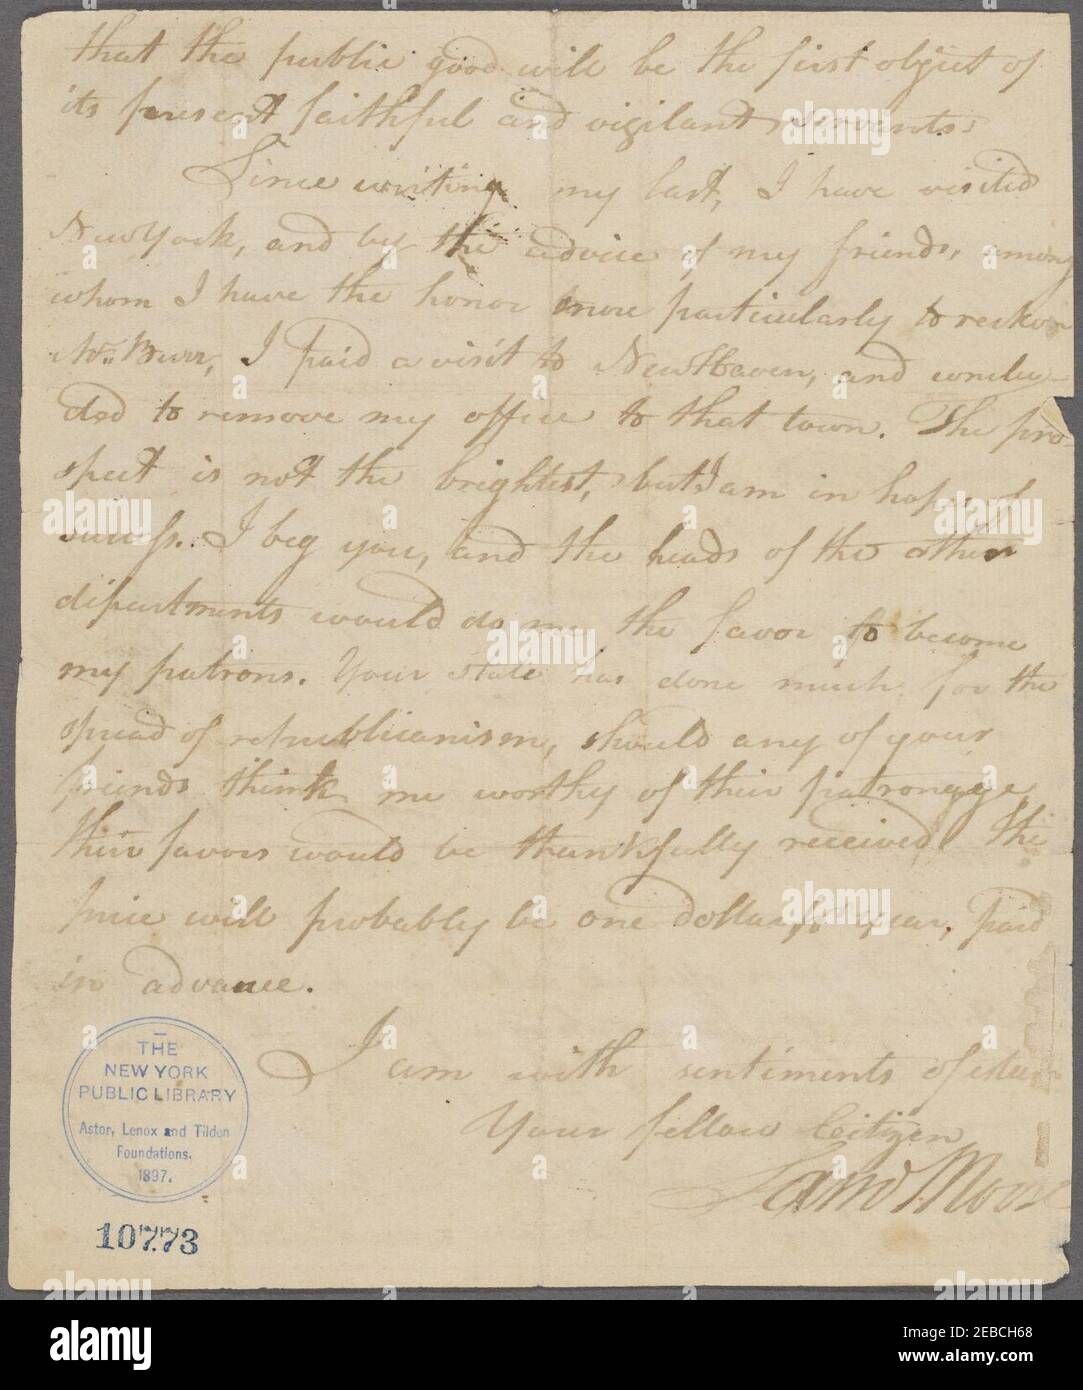 that the public good will be the first object of
its present faithful and vigilant servants.
Since writing my last, I have visited
New York, and by the advice of my friends, among
whom I have the honor more particularly to reckon
Mr. Burr, I paid a visit to New Haven, and conclu-
ded to remove my office to that town. The pro
spect is not the brightest, but I am in hopes of
success. I beg you, and the heads of the other
dipartments would do me the favor to become
my patrons. Your state has done much for the
spread of republicanism, should any of your
friends think me worthy of their patronage
their favors would be thankfully received. The
price will probably be one dollar year, paid
in advance.
I am with sentiments of
Your fellow Citizen
Morse
THE
NEW YORK
PUBLIC LIBRARY
Astor, Lenox and Tilden
Foundations.
1897.
10773
alamy
Image ID: 2EBCH68
www.alamy.com